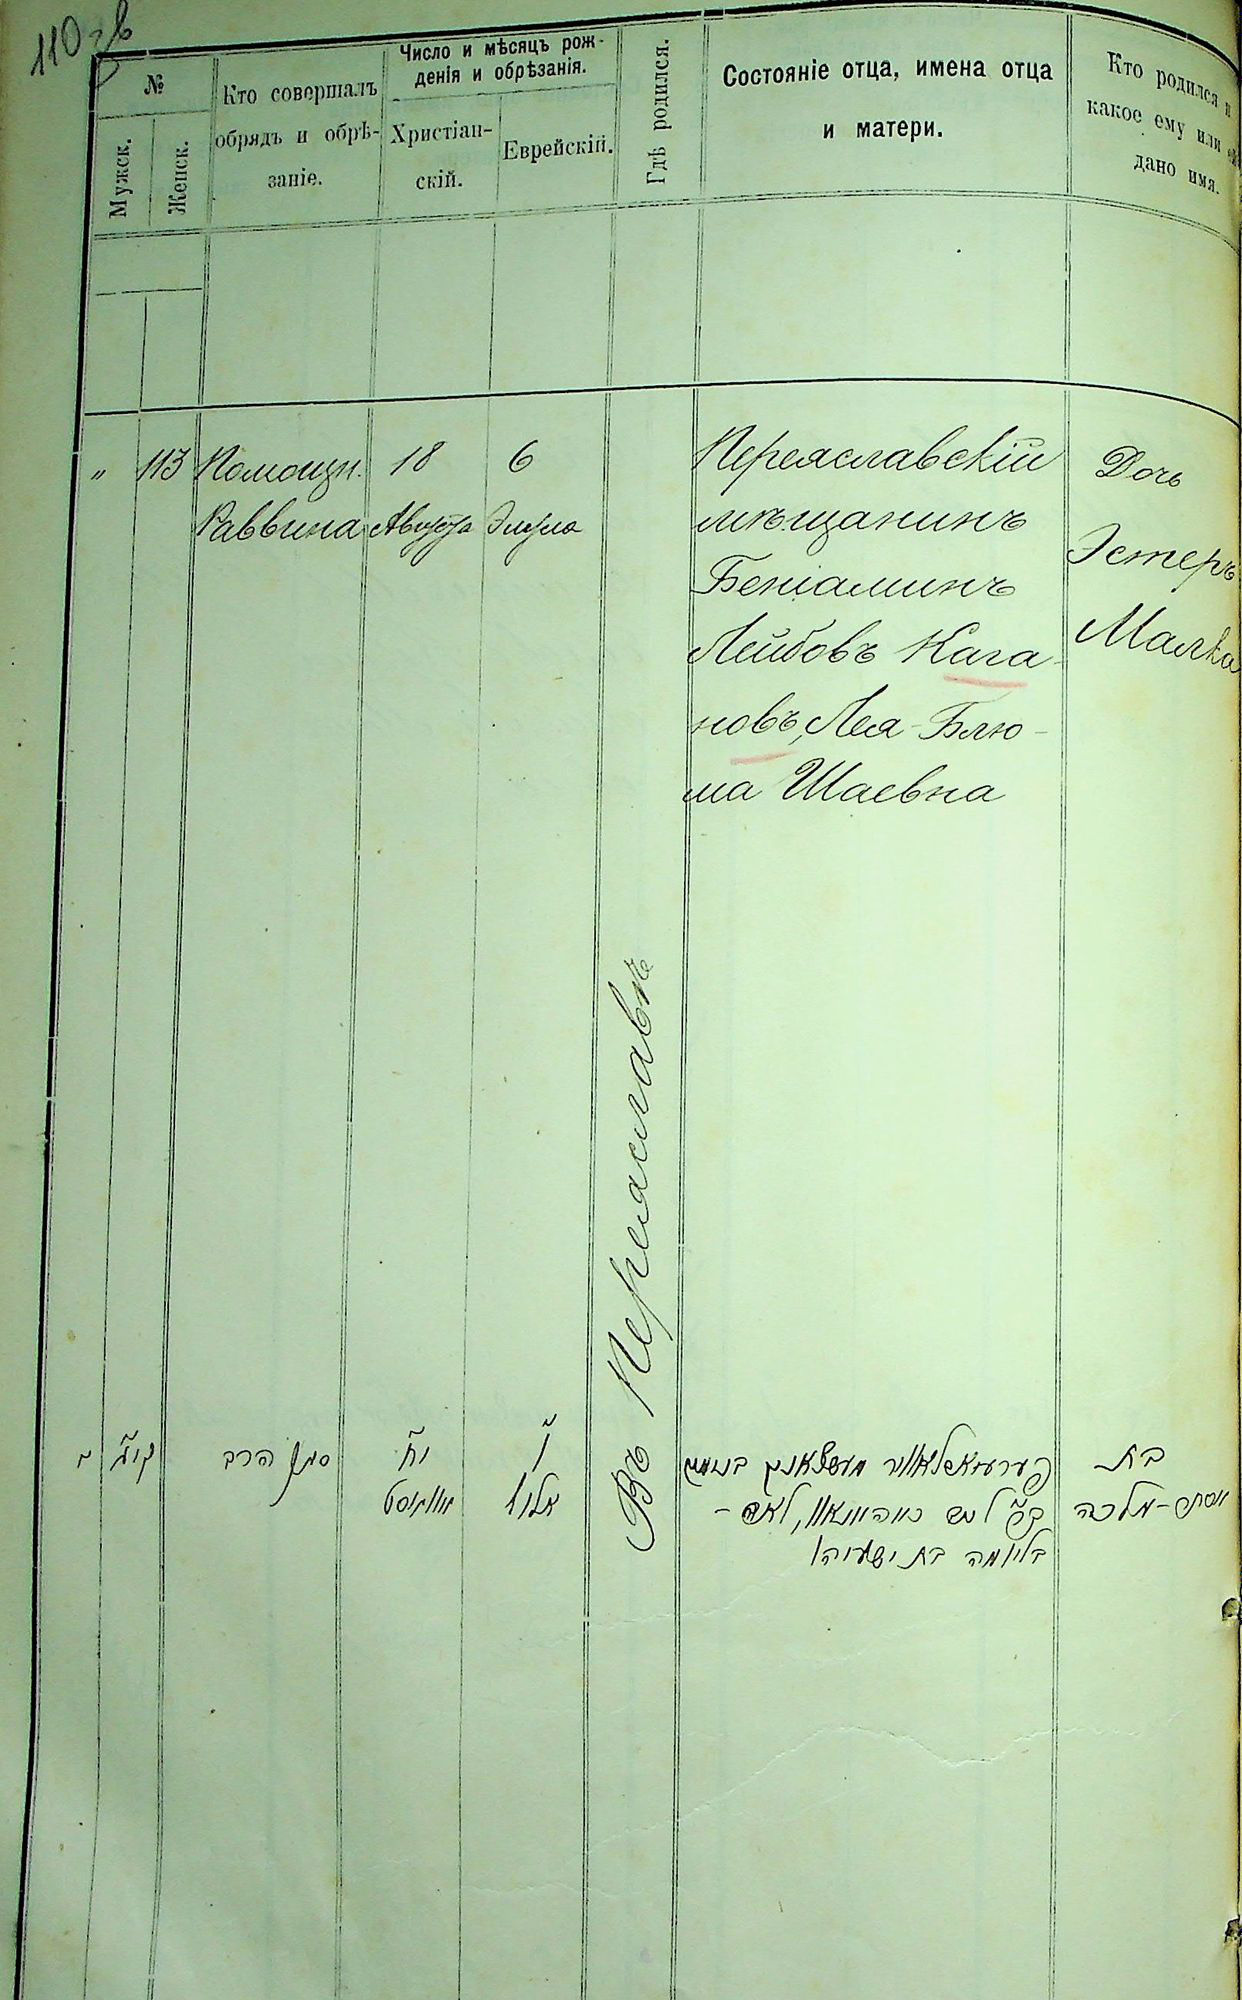 110 зв
№
Мужск.
Женск.
Кто совершалъ
обрядъ и обрѣ-
заніе.
Число и мѣсяцъ рож-
денія и обрѣзанія.
Христіан-
скій.
Еврейскій.
Гдѣ родился.
Состояніе отца, имена отца
и матери.
Кто родился и
какое ему или ей
дано имя.
" 113
Помощн.
Раввина
18
Августа
6
Элула
Въ Переяславѣ
Переяславскій
мѣщанинъ
Беніаминъ
Лейбовъ Кага-
новъ, Лея-Блю-
ма Шаевна
Дочь
Эстеръ
Малка
קיג
סגן הרב
יח
אויגוסט
ו
אלול
פערעיאסלאווער מעשצאנין בנימין
בר' ליב כאהאנאוו, לאה-
בליומה בת ישעיהו
בת
אסתר-מלכה